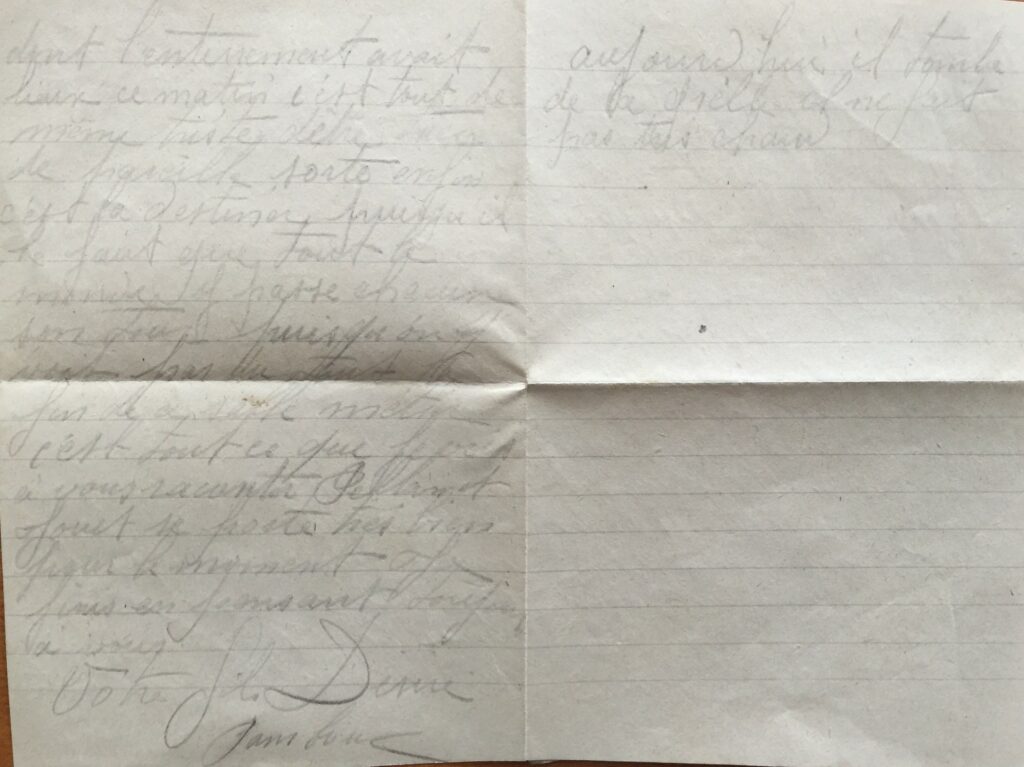 dont l'enterrement avait
lieux ce matin c'est tout de
même triste d'être
de pareille sorte enfin
c'est la destinee puisqu'il
le faut que tout le
monde y passe chacun
son tour puisqu'on y
voit pas du tout la
fin de ce
c'est tout ce que j'ai
à vous raconter
se porte tres bien
pour le moment Je
finis en pensant toujours
a vous
Votre fils Desire
Tambour
aujourd'hui il tombe
de la grêle il ne fait
pas tres chaud